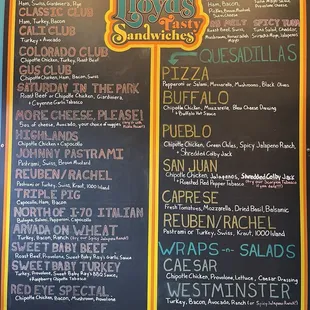 Lloyd's
Tasty
Sandwiches
Ham, Swiss, Gardener's, Mayo
CLASSIC CLUB
Ham, Turkey, Bacon
CALI CLUB
Turkey + Avocado
COLORADO CLUB
Chipotle Chicken, Turkey, Roast Beef
GUS CLUB
Chipotle Chicken, Ham, Bacon, Swiss
SATURDAY IN THE PARK
Roast Beef or Chipotle Chicken, Giardiniera,
+ Cayenne Garlic Tabasco
MORE CHEESE, PLEASE!
5oz of cheese, Avocado, your choice of veggies
HIGHLANDS
Chipotle Chicken + Capocolla
JOHNNY PASTRAMI
Pastrami, Swiss, Brown Mustard
REUBEN/RACHEL
Pastrami or Turkey, Swiss, Kraut, 1000 Island
TRIPLE PIG
Capocolla, Ham, Bacon
NORTH OF I-70 ITALIAN
Capocolla
ARVADA ON WHEAT
Turkey, Bacon, Ranch (try our Spicy Jalapeno Ranch!)
SWEET BABY BEEF
Roast Beef, Provolone, Sweet Baby Ray's Garlic Sauce
SWEET BABY TURKEY
Turkey, Provolone, Sweet Baby Ray's BBQ Sauce,
+ Raspberry Chipotle Tabasco
RED EYE SPECIAL
Chipotle Chicken, Bacon, Mushrooms, Provolone
Ham, Bacon,
MELT
Roast Beef, Swiss,
SPICY TUNA
Tuna Salad, Cheddar,
QUESADILLAS
PIZZA
Pepperoni or Salami, Mozzarella, Mushrooms, Black Olives
BUFFALO
Chipotle Chicken, Mozzarella, Bleu Cheese Dressing
+ Buffalo Hot Sauce
PUEBLO
Chipotle Chicken, Green Chiles, Spicy Jalapeno Ranch,
+ Shredded Colby Jack
SAN JUAN
Chipotle Chicken, Jalapenos, Shredded Colby Jack
+ Roasted Red Pepper Tabasco
CAPRESE
Fresh Tomatoes, Mozzarella, Dried Basil, Balsamic
REUBEN/RACHEL
Pastrami or Turkey, Swiss, Kraut, 1000 Island
WRAPS -n- SALADS
CAESAR
Chipotle Chicken, Provolone, Lettuce, Caesar Dressing
WESTMINSTER
Turkey, Bacon, Avocado, Ranch (or Spicy Jalapeno Ranch!)